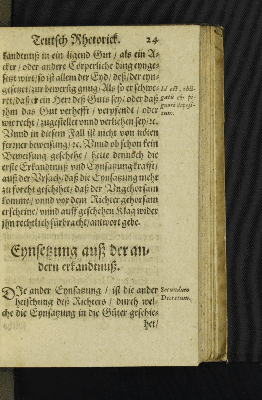 Teutsch Rhetorick. 24
kandtnuß in ein ligend Gut / als ein A-
cker / oder andere Cörperliche ding eynge-
setzt wirt / so ist allein der Eyd / deß / der eyn-
gesetzt / zur bewerung gnug / Als so er schwe-
ret / daß er ein Herr deß Guts sey / oder daß
ihm das Gut verhefft / verpfendt / oder
wie recht / zugestellet vnnd verliehen sey / ꝛc.
Vnnd in diesem Fall ist nicht von nöten
ferrner beweisung / ꝛc. Vnnd ob schon kein
Beweisung geschehe / dennoch die
erste Erkandtnuß vnd Eynsatzung krafft /
auß der Vrsach / daß die Eynsatzung mehr
zu forcht geschihet / daß der Vngehorsam
komme / vnnd vor dem Richter gehorsam
erscheine / vnnd auff geschehen Klag wider
jhn rechtlich fürbracht / antwort gebe.
Id est, obli-
gatū &
pignore
tum.
Eynsetzung auß der an-
dern erkandtnuß.
DIe ander Eynsatzung / ist die ander
heischung deß Richters / durch wel-
che die Eynsatzung in die Güter geschie-
het /
Secundum
Decretum.